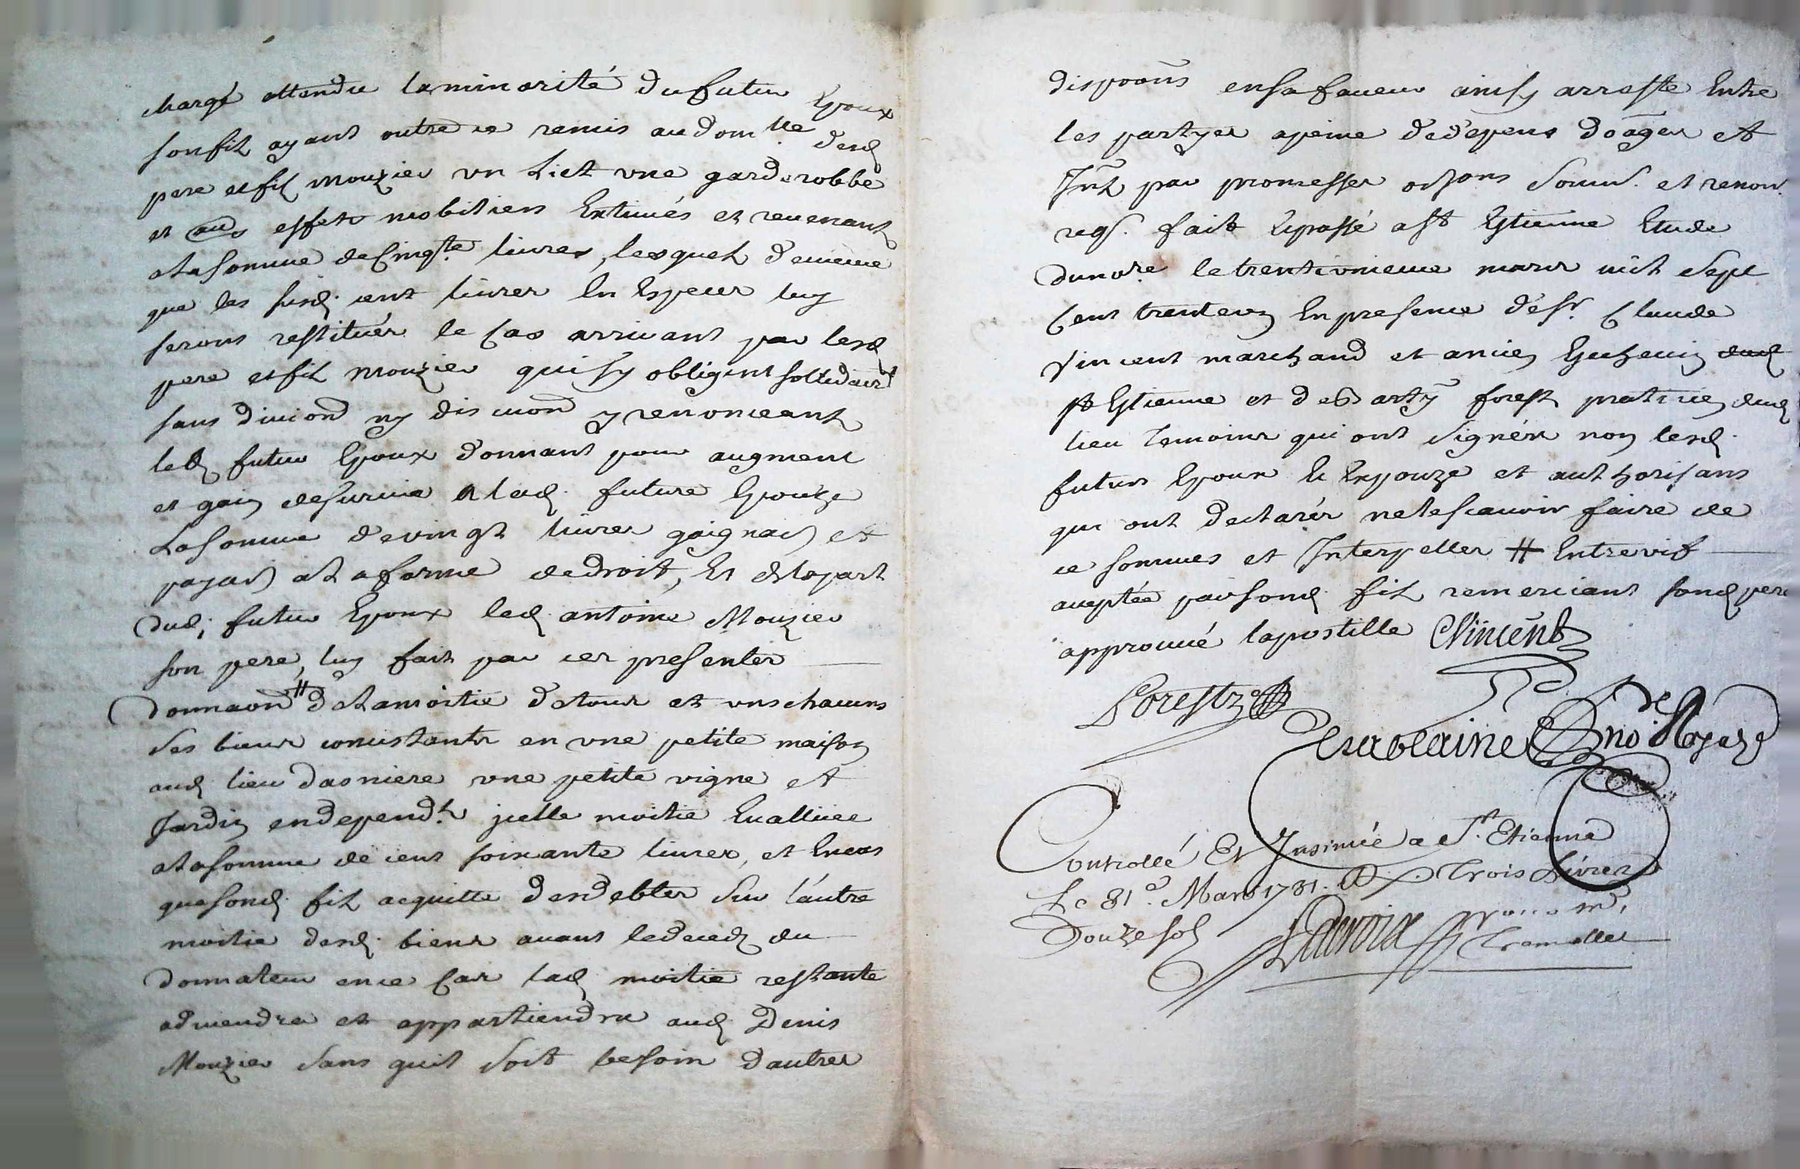 chargé attendu la minorité du futur Epoux
son fils ayant outre ce remis aud Dom.lle desd
pere et fils mouzier un Lict une garderobbe
et aues effets mobiliers Extimés et revenants
ala somme de Cinqte livres, lesquels de meme
que les susd. cent livres En Especes luy
seront restitués le Cas arrivant par lesd
pere et fils mouzier qui sy obligent sollidairt
sans division ny discuion y renonceants
led futur Epoux donnant pour augment
et gain de survie a lad. future Epouze
La somme de vingt livres gaignab et
payab ala forme de droit, Et de la part
dud; futur Epoux led antoine Mouzier
son pere, luy fait par ces presentes
Donnaon # de la moitié de tous et uns chacuns
ses biens concistants en une petite maison
aud lieu dasniere une petite vigne et
Jardin endepend.ts jcelle moitie Evalluee
ala somme de cent soixante livres, et En cas
que sond. fils acquitte des debtes sur l'autre
moitie desd. biens avant le deceds du
donnateur en ce Cas lad moitie restante
adviendra et appartiendra aud Denis
Mouzier sans quil soit besoin dautres
dispoons en sa faveur ainsy arreste Entre
les partyes apeine de depens doages et
Jnts par promesses obons soums. et renons.
reqs. fait Epassé a St Estienne Etude
du nore. le trentunieme mars mil Sept
Cent trente un En presence de Sr. Claude
Vincent marchand et ancien Echevin dud
St Estienne et de Barty forest praticien dud
lieu temoins qui ont signés non lesd.
futurs Epoux Et Expouze et authorisans
qui ont declarés ne le scavoir faire de
ce sommes et Interpelles # Entrevif
aceptée par sond. fils remerciant sond pere
approuvé lapostille CVincent
Forest
Desverneys
Controllé Et Insinué a St. Etienne
Le 31e. Mars 1731. R. Trois Livres
Douze sols Lacroix pour mr.
Tramollet